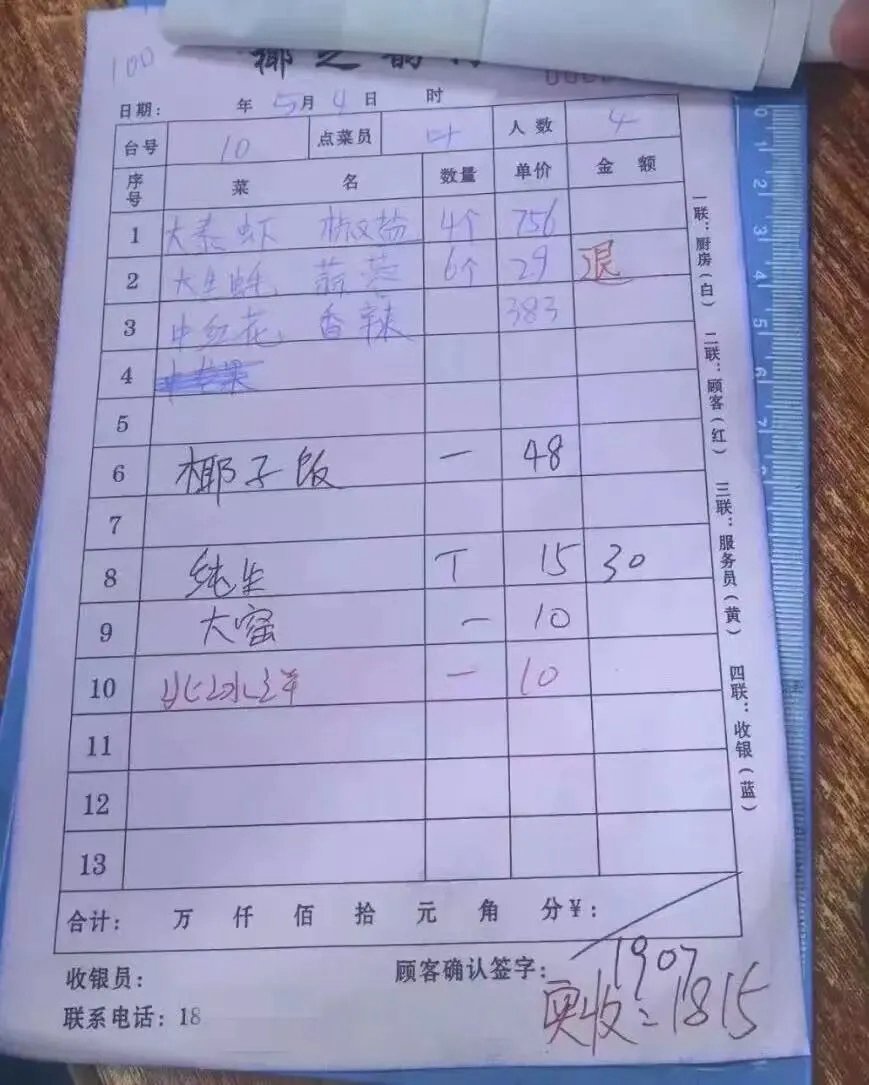 100
椰之韵
日期： 年 5月 4日 时
台号 10 点菜员 叶 人数 4
序号 菜名 数量 单价 金额
1 大泰虾 椒盐 4个 756
2 大生蚝 蒜蓉 6个 29 退
3 中红花 香辣 383
4
5
6 椰子饭 一 48
7
8 纯生 T 15 30
9 大窑 一 10
10 北冰洋 一 10
11
12
13
合计： 万 仟 佰 拾 元 角 分￥：
收银员： 顾客确认签字：
1907
联系电话：18
实收：1815
一联：厨房（白） 二联：顾客（红） 三联：服务员（黄） 四联：收银（蓝）
0 1 2 3 4 5 6 7